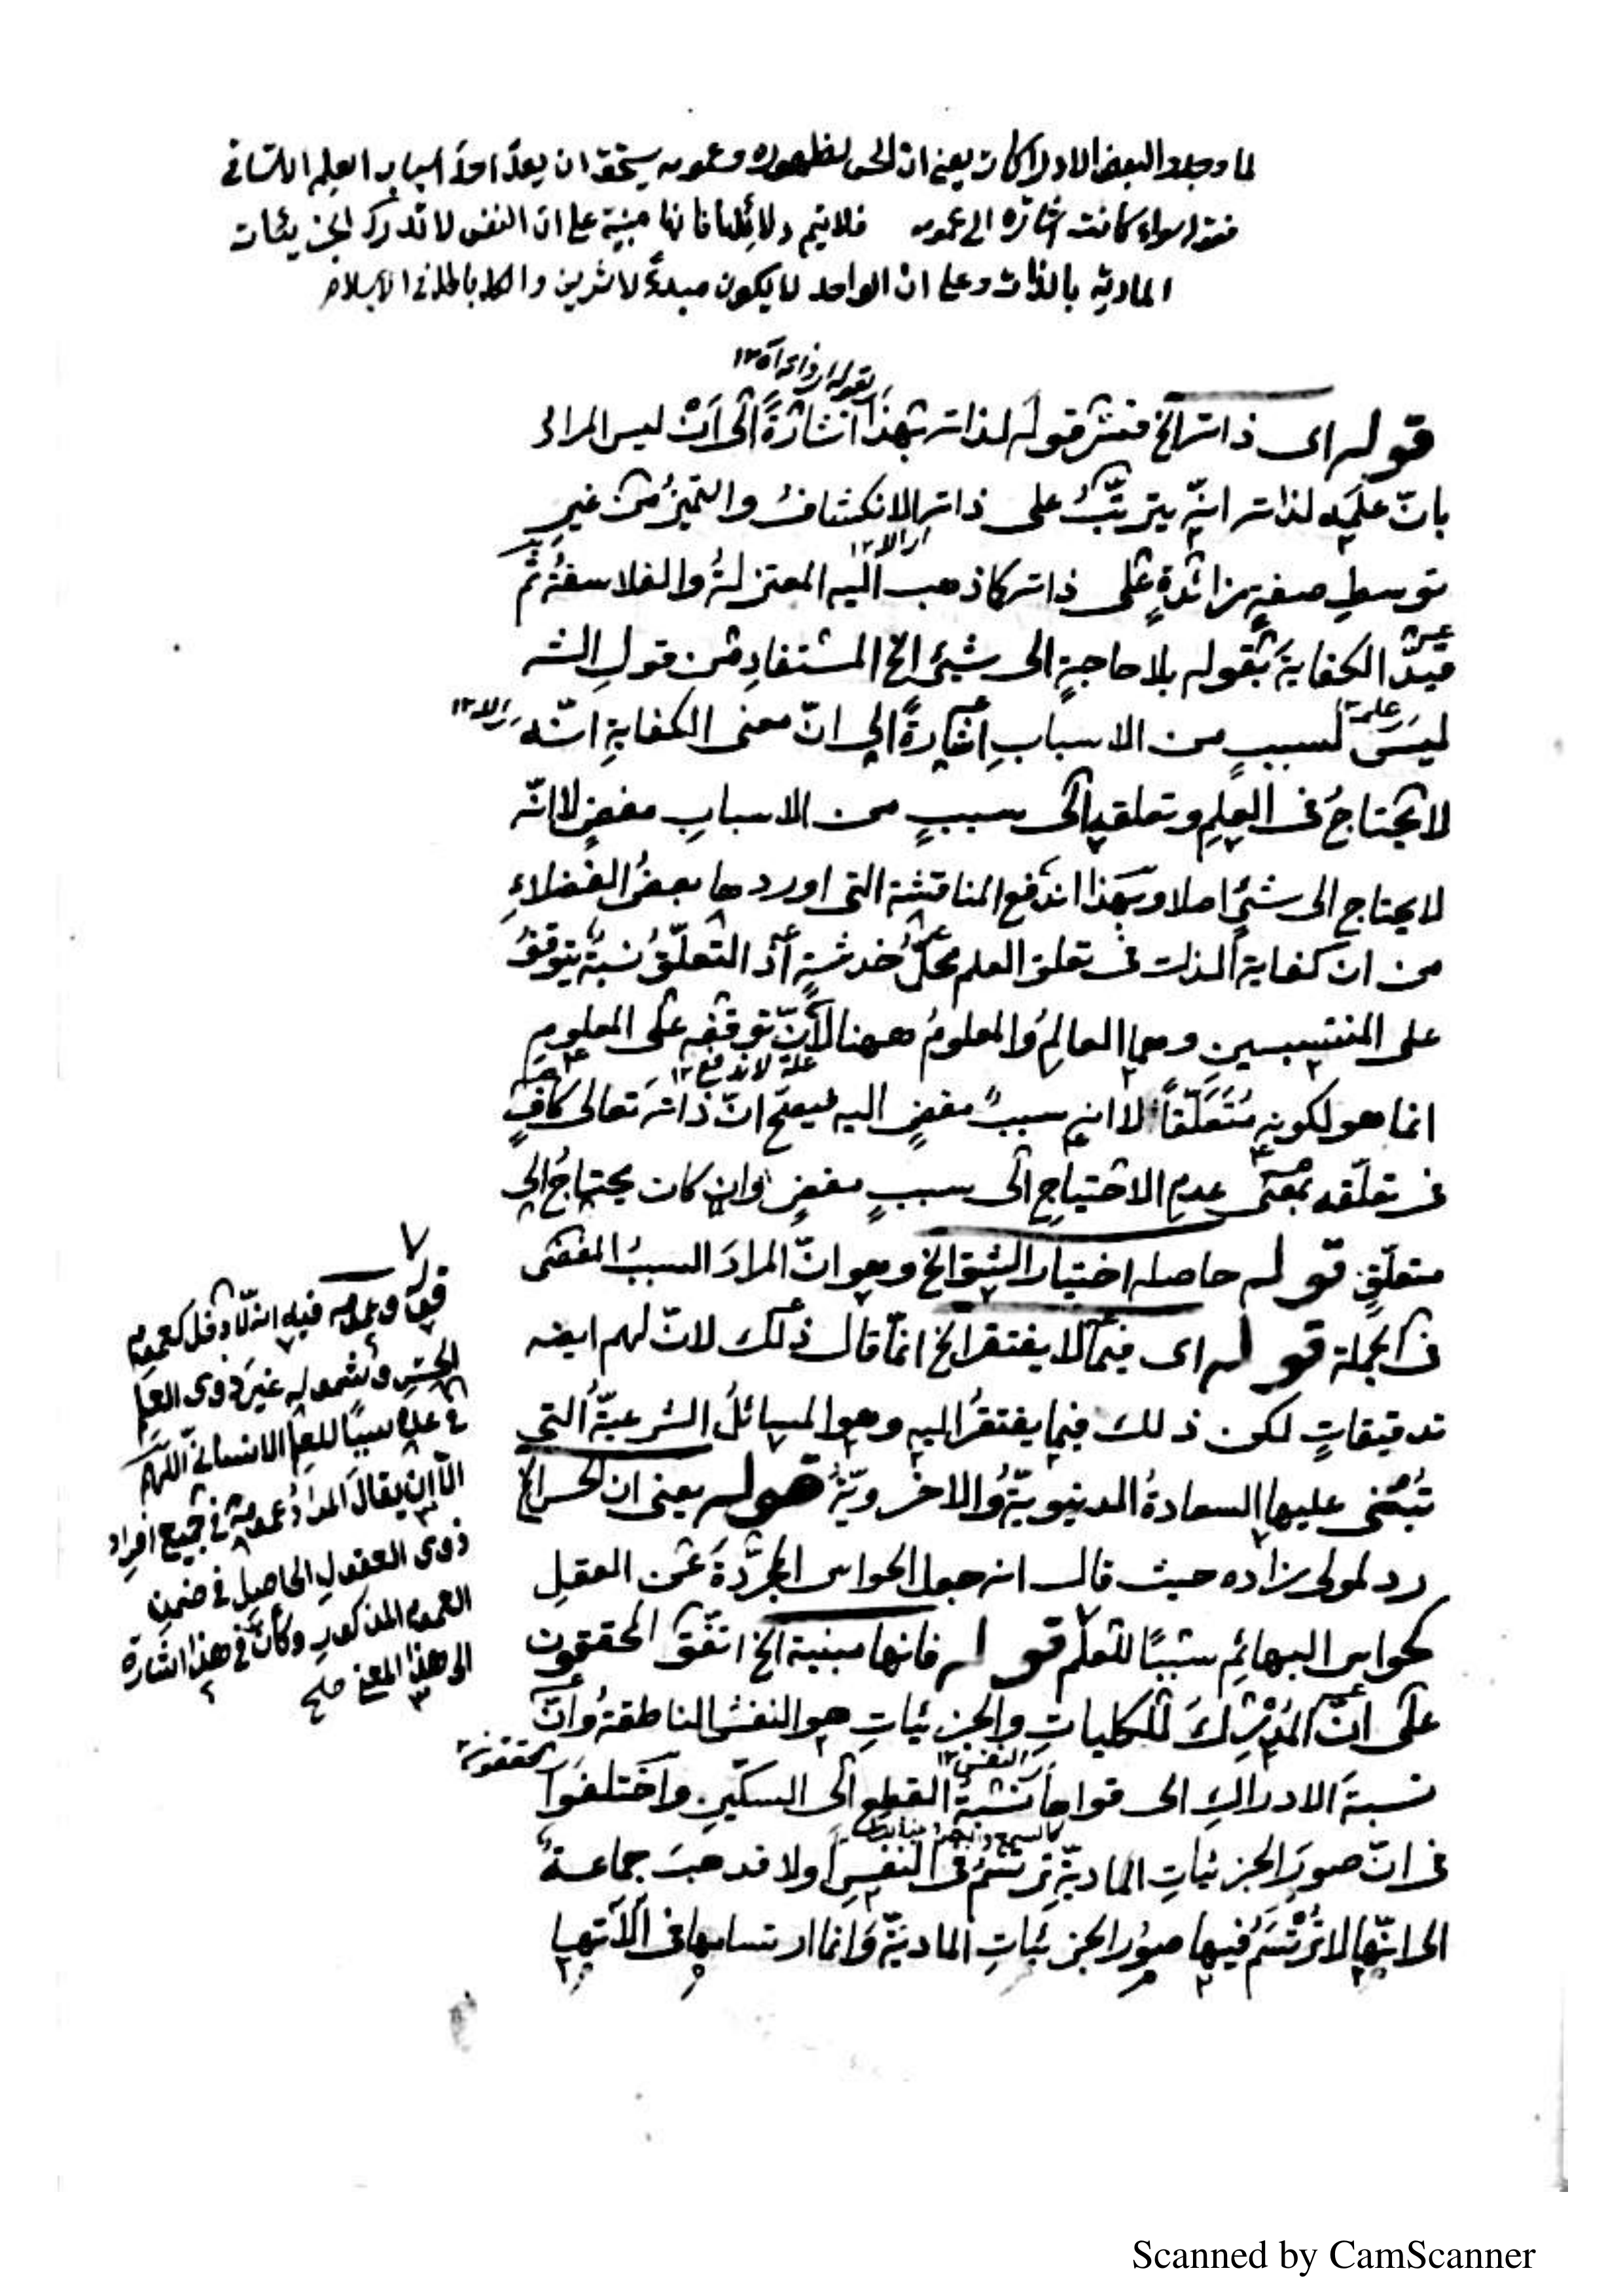 لما وجدوا البعض الادراكات يعني ان الحس لظهوره وعمومه يستحق ان يعدّ احد اسباب العلم الانساني
فقوله سواء كانت اشارة الى عمومه فلا تتم دلائلها فانها مبنية على ان النفس لا تدرك الجزيئات
المادية بالذات وعلى ان الواحد لا يكون مبدءً لاثرين والكل باطل في الاسلام
قوله اى ذاته الخ فسّر قوله لذاته بهذا اشارةً الى اَنْ ليس المراد
بانّ علمه لذاته انّه يترتّبُ على ذاته الانكشافُ والتميّزُ من غيرِ
توسطِ صفةٍ زائدةٍ على ذاته كما ذهب اليه المعتزلةُ والفلاسفةُ ثم
قيّدَ الكفايةَ بقوله بلا حاجةٍ الى شيئ الخ المستفادِ من قولِ الشه
ليسَ لسببٍ من الاسبابِ اشارةً الى انّ معنى الكفايةِ انّه
لا يحتاجُ فى العلمِ وتعلقِه الى سببٍ من الاسبابِ مفضٍ لا انّه
لا يحتاج الى شيئٍ اصلا وبهذا اندفع المناقشة التى اوردها بعضُ الفضلاءِ
من ان كفاية الذات فى تعلق العلم محلّ خدشةٍ اذ التعلّقُ نسبةٌ يتوقفُ
على المنتسبين وهما العالمُ والمعلومُ ههنا لانّ توقفه على المعلومِ
علة لاندفع ١٢
انما هو لكونه مُتَعَلَّقاً لا انه سببٌ مفضٍ اليه فيصح انّ ذاتَه تعالى كافٍ
فى تعلّقه بمعنى عدمِ الاحتياجِ الى سببٍ مفضٍ وان كان يحتاجُ الى
متعلّقٍ قوله حاصله اختيار الشق الخ وهو انّ المرادَ السببُ المفضى
فى الجملة قوله اى فيما لا يفتقر الخ انّما قال ذلك لانّ لهم ايضه
تدقيقاتٍ لكن ذلك فيما يفتقرُ اليه وهو المسائلُ الشرعيّةُ التى
تُبْتَنى عليها السعادةُ الدنيويّةُ والاخرويّةُ قوله يعنى ان الحس الخ
رد لمولى زاده حيث قال انه جعل الحواس المجرّدةَ عن العقلِ
كحواس البهائمِ سببًا للعلم قوله فانها مبنية الخ اتفق المحققون
على انّ المُدْرِكَ للكلياتِ والجزئياتِ هو النفسُ الناطقةُ وانّ
النفس ١٢
نسبةَ الادراكِ الى قواها كنسبةِ القطعِ الى السكّينِ واختلفوا
فى انّ صورَ الجزئياتِ الماديّةِ ترتسمُ فى النفسِ اولا فذهبَ جماعةٌ
الى انّها لا تُرْتَسَمُ فيها صوُر الجزئياتِ الماديّةِ وانما ارتسامها فى آلاتها
قوله وعمومه فيه انه لا دخل لعموم
الحسِ وشموله غيرَ ذوى العلم
فى عدّه سببًا للعلم الانسانىّ اللهم
الّا ان يقالَ المرادُ عمومه فى جميعِ افرادِ
ذوى العقولِ الحاصلِ فى ضمنِ
العموم المذكورِ وكأنّ فى هذا اشارة
الى هذا المعنى
Scanned by CamScanner